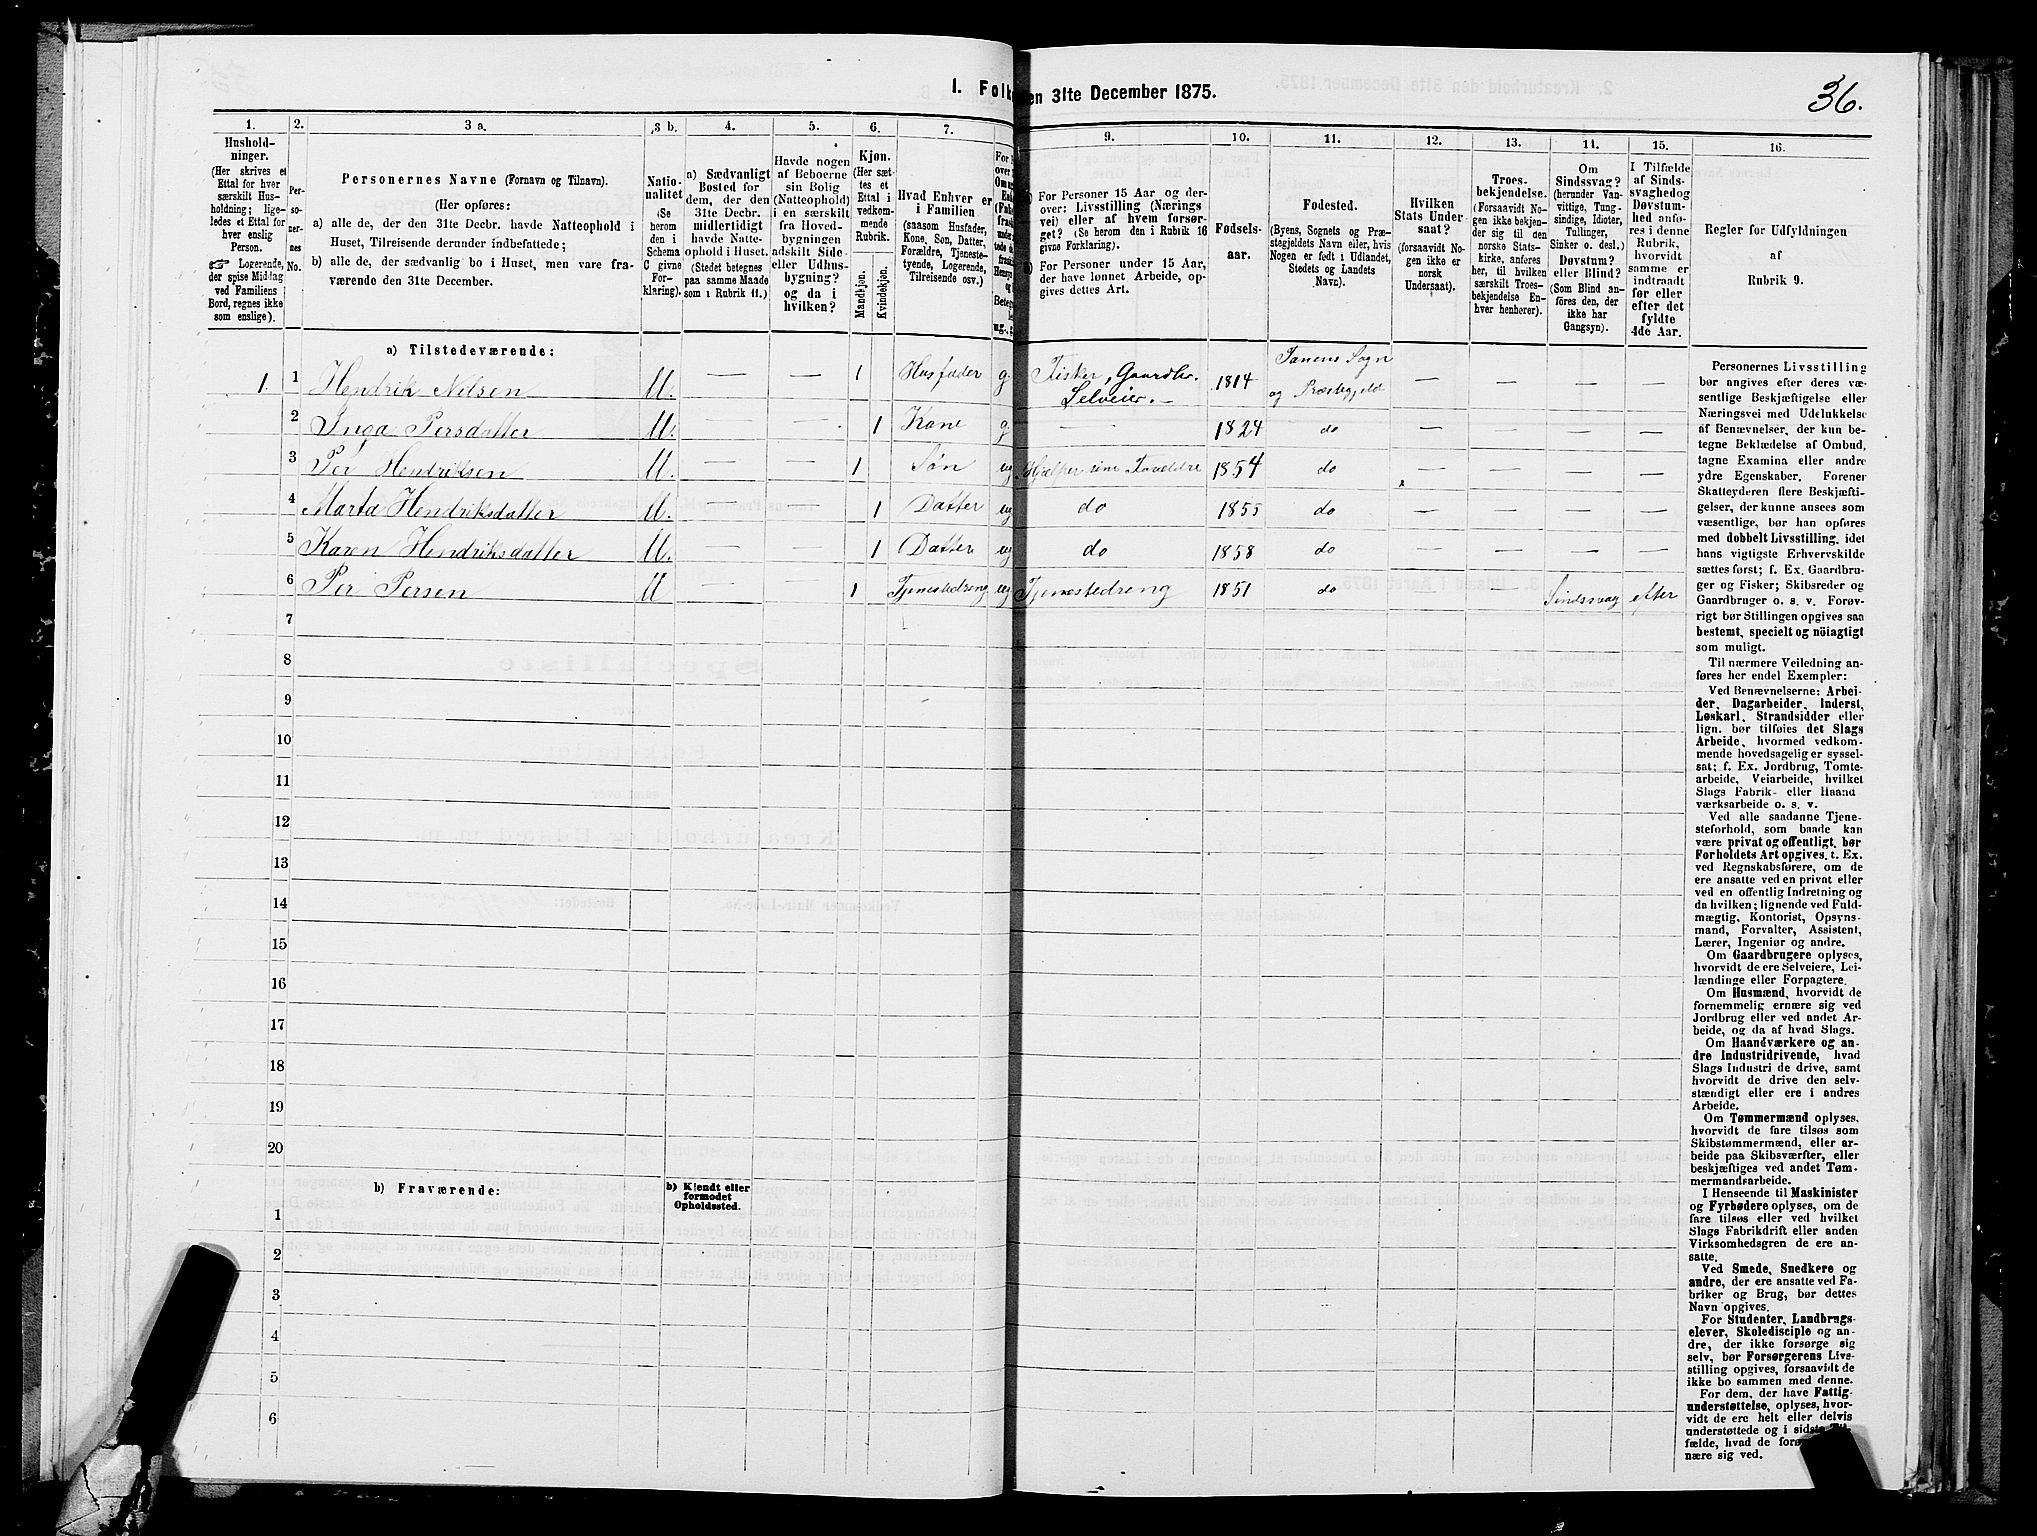 36.
1. Folke
en 31te December 1875.
1. 2. 3 a. 3 b. 4. 5. 6. 7. 9. 10. 11. 12. 13. 14. 15. 16.
Hushold-
ninger.
(Her skrives et
Ettal for hver
særskilt Hus-
holdning; lige-
ledes et Ettal for
hver enslig
Person.
☞ Logerende,
der spise Middag
ved Familiens
Bord, regnes ikke
som enslige).
Per-
so-
ner-
nes
No.
Personernes Navne (Fornavn og Tilnavn).
(Her opføres:
a) alle de, der den 31te Decbr. havde Natteophold i
Huset, Tilreisende derunder indbefattede;
b) alle de, der sædvanlig bo i Huset, men vare fra-
værende den 31te December.
Natio-
nalitet
(Se
herom
den i
Schema
C givne
For-
klaring).
a) Sædvanligt
Bosted for
dem, der den
31te Decbr.
midlertidigt
havde Natte-
ophold i Huset.
(Stedet betegnes
paa samme Maade
som i Rubrik 11.)
Havde nogen
af Beboerne
sin Bolig
(Natteophold)
i en særskilt
fra Hoved-
bygningen
adskilt Side-
eller Udhus-
bygning?
og da i
hvilken?
Kjøn.
(Her sæt-
tes et
Ettal i
vedkom-
mende
Rubrik.
Mandkjøn.
Kvindekjøn.
Hvad Enhver er
i Familien
(saasom Husfader,
Kone, Søn, Datter,
Forældre, Tjeneste-
tyende, Logerende,
Tilreisende osv.)
For Personer 15 Aar og der-
over: Livsstilling (Nærings-
vei) eller af hvem forsør-
get? (Se herom den i Rubrik 16
givne Forklaring).
For Personer under 15 Aar,
der have lønnet Arbeide, op-
gives dettes Art.
Fødsels-
aar.
Fødested.
(Byens, Sognets og Præ-
stegjeldets Navn eller, hvis
Nogen er født i Udlandet,
Stedets og Landets
Navn).
Hvilken
Stats Under-
saat?
(forsaavidt No-
gen ikke er
norsk
Undersaat).
Troes-
bekjendelse.
(Forsaavidt No-
gen ikke bekjen-
der sig til den
norske Stats-
kirke, anføres
her, til hvilken
særskilt Troes-
bekjendelse En-
hver henhører).
Om
Sindssvag?
(herunder Van-
vittige, Tung-
sindige, Idioter,
Tullinger,
Sinker o. desl.)
Døvstum?
eller Blind?
(Som Blind an-
føres den, der
ikke har
Gangsyn).
I Tilfælde
af Sinds-
svaghed og
Døvstum-
hed anfø-
res i denne
Rubrik,
hvorvidt
samme er
indtraadt
før eller
efter det
fyldte
4de Aar.
Regler for Udfyldningen
af
Rubrik 9.
a) Tilstedeværende:
1. 1 Hendrik Nilsen U. — — 1 Husfader g Fisker, Gaardbr. Selveier. 1814 Tanens Sogn og Præstegjeld — — — —
2 Inga Persdatter U. — — 1 Kone g — 1824 do — — — —
3 Per Hendriksen U. — — 1 Søn ug Hjælper sine Forældre 1854 do — — — —
4 Marta Hendriksdatter U. — — 1 Datter ug do 1855 do — — — —
5 Karen Hendriksdatter U. — — 1 Datter ug do 1858 do — — — —
6 Per Persen U — — 1 Tjenestedreng ug Tjenestedreng 1851 do — — Sindssvag efter
7
8
9
10
11
12
13
14
15
16
17
18
19
20
b) Fraværende:
b) Kjendt eller
formodet
Opholdssted.
1
2
3
4
5
6
Personernes Livsstilling
bør angives efter deres væ-
sentlige Beskjæftigelse eller
Næringsvei med Udelukkelse
af Benævnelser, der kun be-
tegne Beklædelse af Ombud,
tagne Examina eller andre
ydre Egenskaber. Forener
Skatteyderen flere Beskjæfti-
gelser, der kunne ansees som
væsentlige, bør han opføres
med dobbelt Livsstilling, idet
hans vigtigste Erhvervskilde
sættes først; f. Ex. Gaardbru-
ger og Fisker; Skibsreder og
Gaardbruger o. s. v. Forøv-
rigt bør Stillingen opgives saa
bestemt, specielt og nöiagtigt
som muligt.
Til nærmere Veiledning an-
føres her endel Exempler:
Ved Benævnelserne: Arbei-
der, Dagarbeider, Inderst,
Løskarl, Strandsidder eller
lign. bør tilføies det Slags
Arbeide, hvormed vedkom-
mende hovedsagelig er syssel-
sat; f. Ex. Jordbrug, Tomte-
arbeide, Veiarbeide, hvilket
Slags Fabrik- eller Haand
værksarbeide o. s. v.
Ved alle saadanne Tjene-
steforhold, som baade kan
være privat og offentligt, bør
Forholdets Art opgives, t. Ex.
ved Regnskabsførere, om de
ere ansatte ved en privat eller
ved en offentlig Indretning og
da hvilken; lignende ved Fuld-
mægtig, Kontorist, Opsyns-
mand, Forvalter, Assistent,
Lærer, Ingeniør og andre.
Om Gaardbrugere oplyses,
hvorvidt de ere Selveiere, Lei-
lændinge eller Forpagtere.
Om Husmænd, hvorvidt de
fornemmelig ernære sig ved
Jordbrug eller ved andet Ar-
beide, og da af hvad Slags.
Om Haandværkere og an-
dre Industridrivende, hvad
Slags Industri de drive, samt
hvorvidt de drive den selv-
stændigt eller ere i andres
Arbeide.
Om Tømmermænd oplyses,
hvorvidt de fare tilsøs som
Skibstømmermænd, eller ar-
beide paa Skibsværfter, eller
beskjæftiges ved andet Tøm-
mermandsarbeide.
I Henseende til Maskinister
og Fyrbødere oplyses, om de
fare tilsøs eller ved hvilket
Slags Fabrikdrift eller anden
Virksomhedsgren de ere an-
satte.
Ved Smede, Snedkere og
andre, der ere ansatte ved Fa-
briker og Brug, bør dettes
Navn opgives.
For Studenter, Landbrugs-
elever, Skoledisciple og an-
dre, der ikke forsørge sig
selv, bør Forsørgerens Livs-
stilling opgives, forsaavidt de
ikke bo sammen med denne.
For dem, der have Fattig-
understøttelse, oplyses, hvor-
vidt de ere helt eller delvis
understøttede og i sidste
fælde, hvad de
nære sig ved.